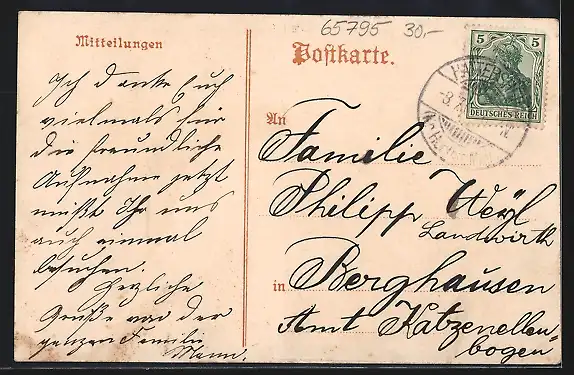 65795 30,-
Mitteilungen
Postkarte.
5 5
DEUTSCHES REICH
Ich danke Euch
vielmals für
die freundliche
Aufnahme jetzt
müßt Ihr uns
auch einmal
besuchen.
Herzliche
Grüße von der
ganzen Familie
Mann.
An
Familie
Philipp Weyl
Landwirth
in Berghausen
Amt Katzenellen-
bogen